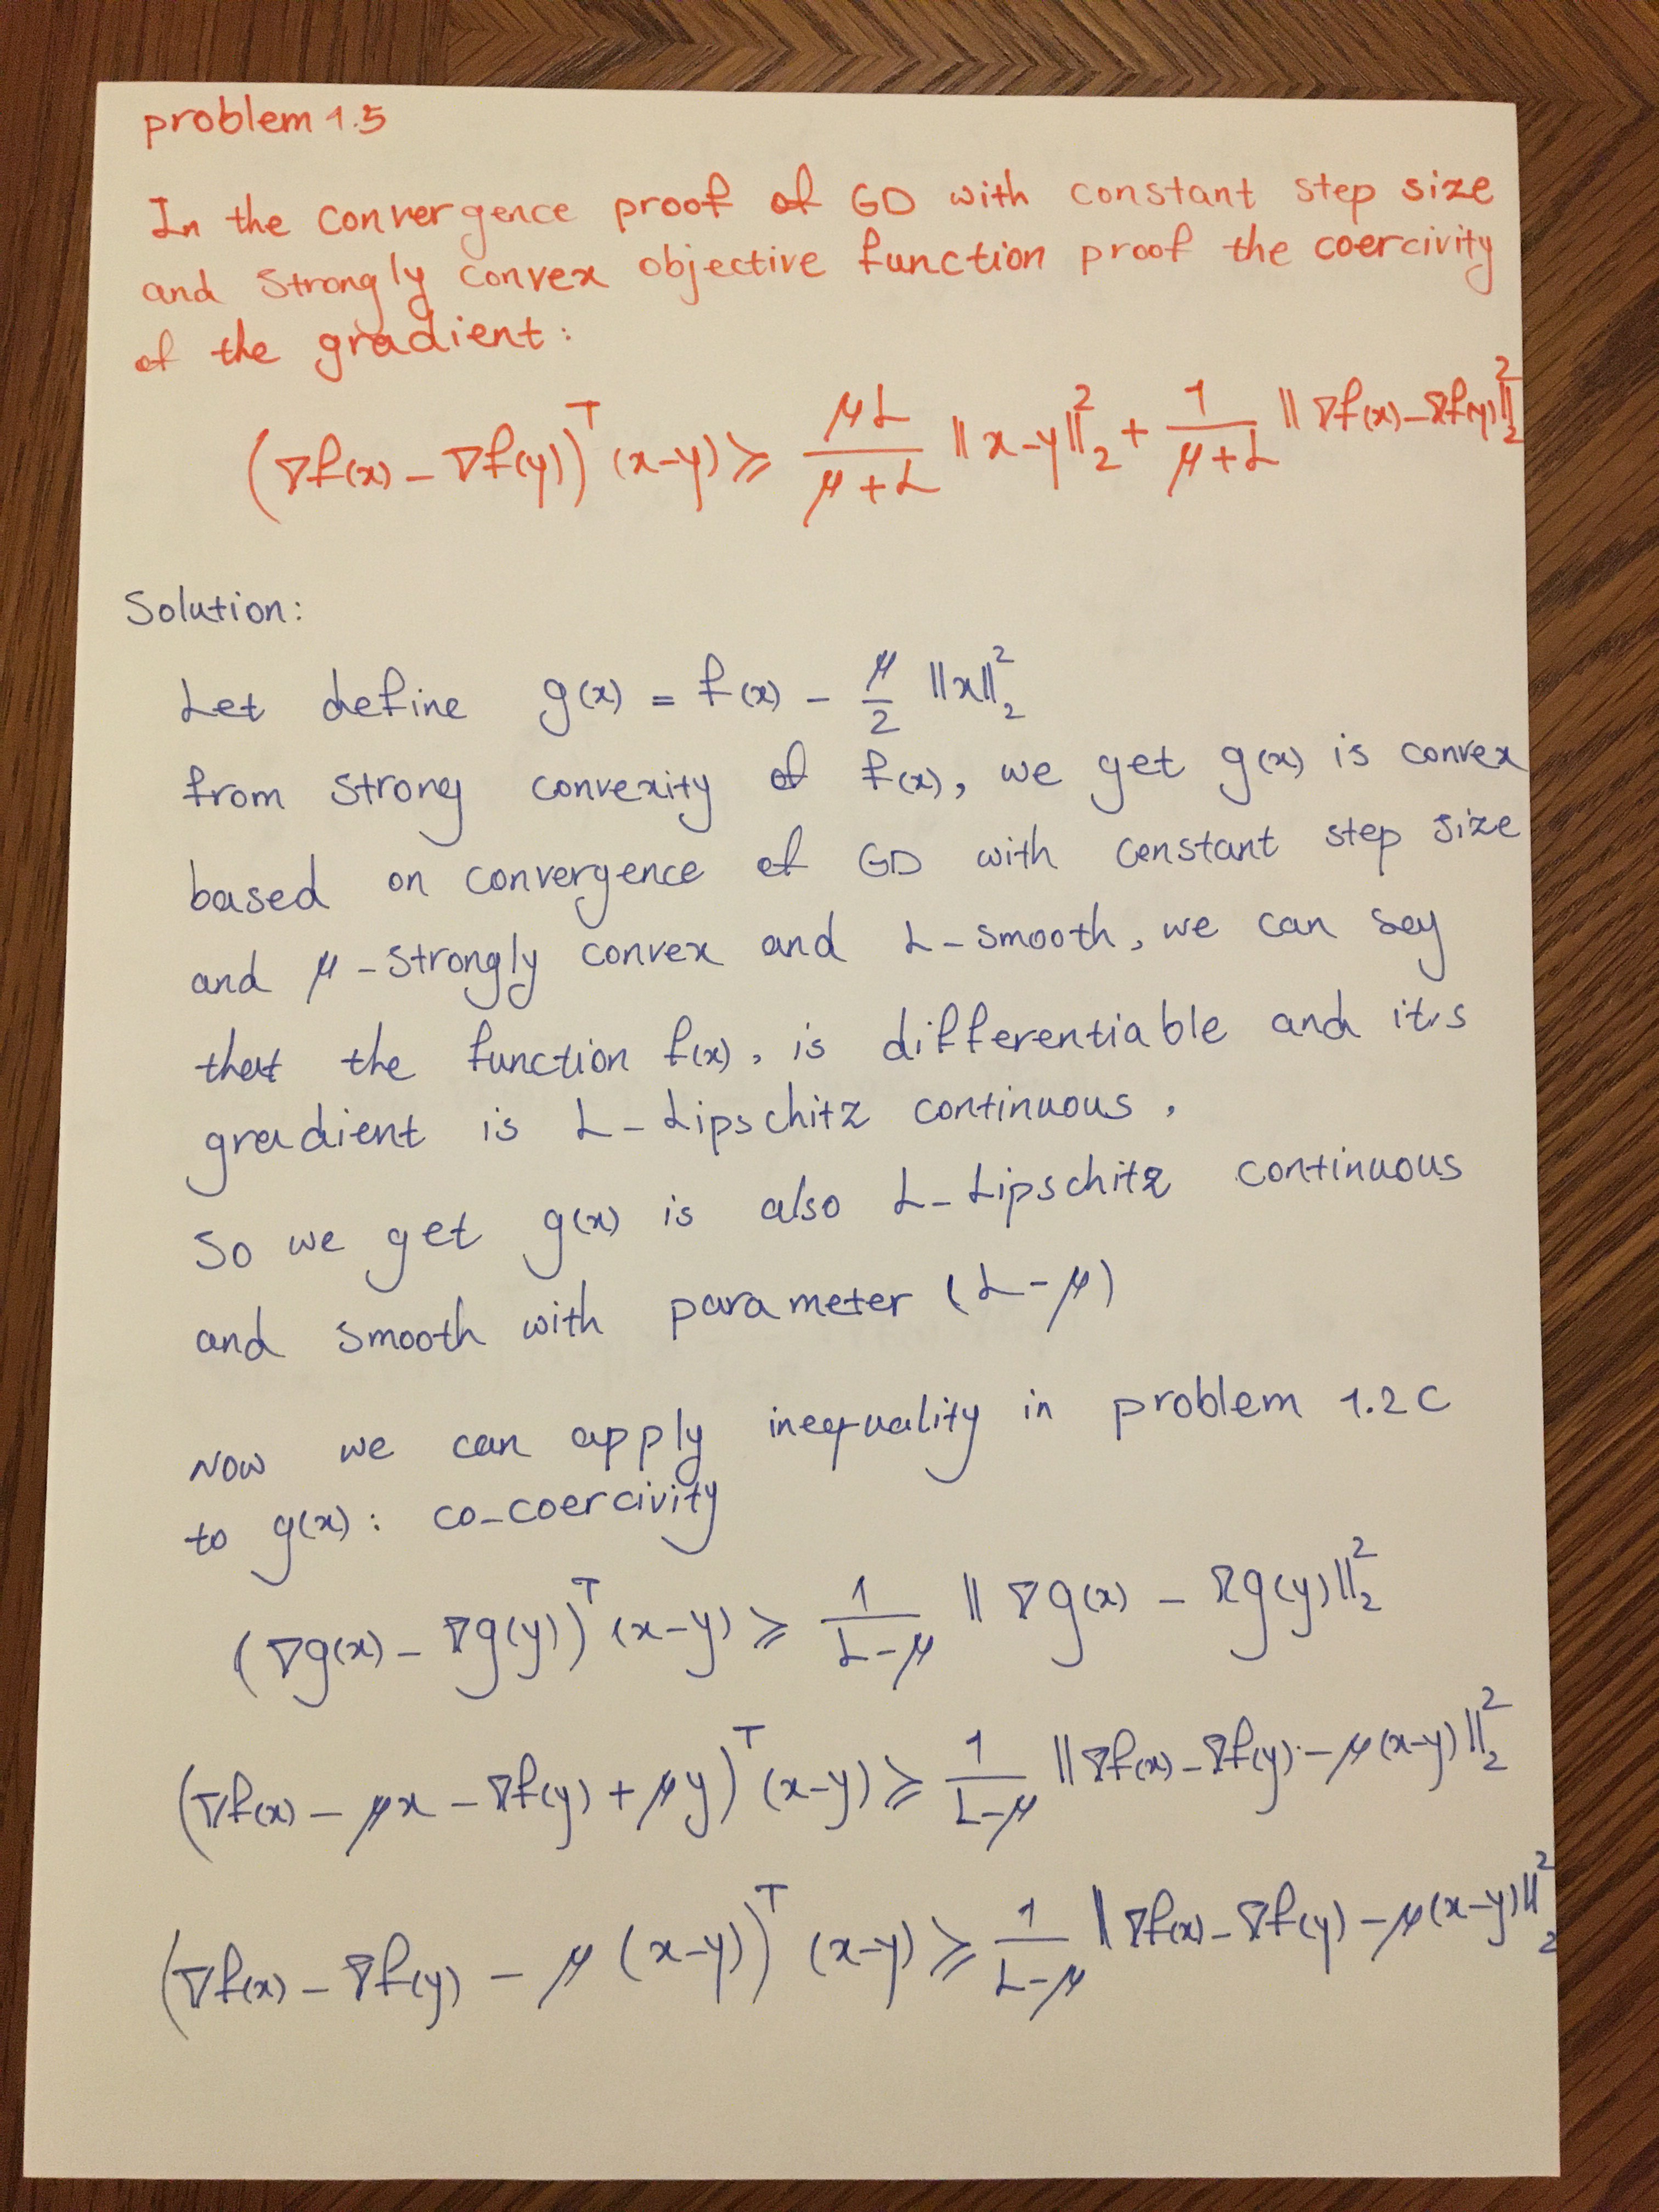 problem 1.5
In the convergence proof of GD with constant step size
and strongly convex objective function proof the coercivity
of the gradient:
(∇f(x) - ∇f(y))^T (x-y) ⩾ μL/(μ+L) ||x-y||_2^2 + 1/(μ+L) ||∇f(x) - ∇f(y)||_2^2
Solution:
Let define g(x) = f(x) - μ/2 ||x||_2^2
from strong convexity of f(x), we get g(x) is convex
based on convergence of GD with constant step size
and μ-strongly convex and L-smooth, we can say
that the function f(x), is differentiable and it's
gradient is L-Lipschitz continuous,
So we get g(x) is also L-Lipschitz continuous
and smooth with parameter (L-μ)
Now we can apply inequality in problem 1.2 C
to g(x): co-coercivity
(∇g(x) - ∇g(y))^T (x-y) ⩾ 1/(L-μ) ||∇g(x) - ∇g(y)||_2^2
(∇f(x) - μx - ∇f(y) + μy)^T (x-y) ⩾ 1/(L-μ) ||∇f(x) - ∇f(y) - μ(x-y)||_2^2
(∇f(x) - ∇f(y) - μ(x-y))^T (x-y) ⩾ 1/(L-μ) ||∇f(x) - ∇f(y) - μ(x-y)||_2^2